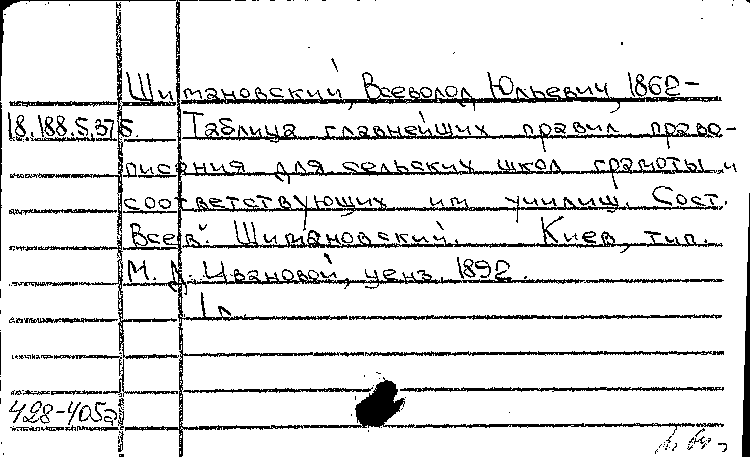 Шимановский, Всеволод Юльевич, 1862-
18.188.5.375. Таблица главнейших правил право-
писания для сельских школ грамоты и
соответствующих им училищ. Сост.
Всев. Шимановский. Киев, тип.
М. Д. Ивановой, ценз. 1892.
1 л.
428-405а